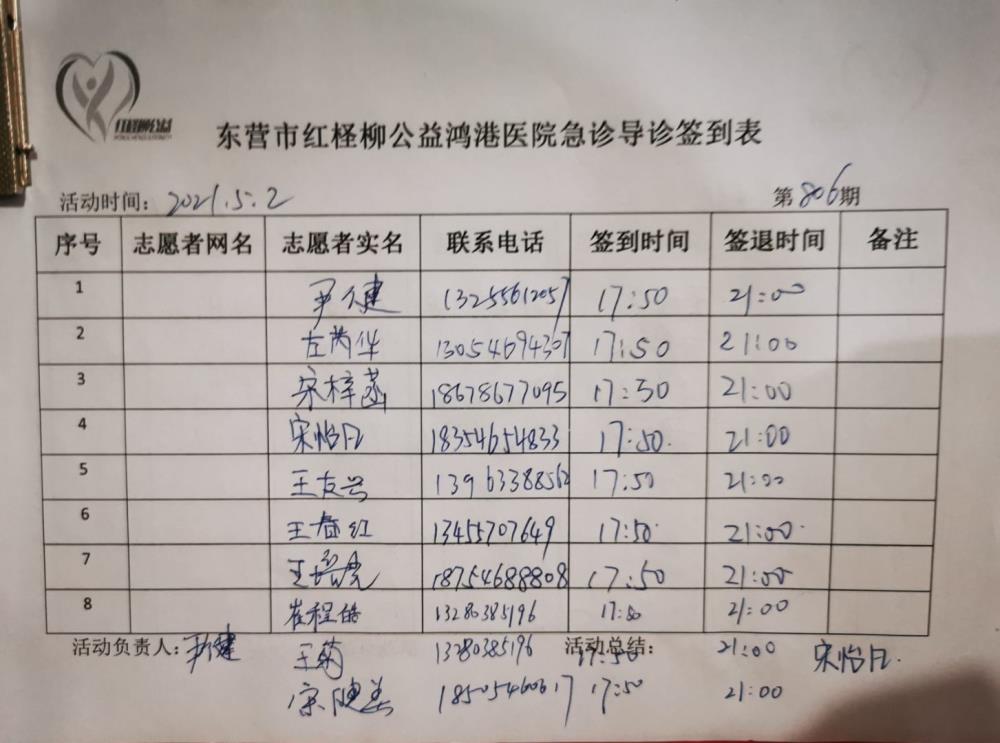 红柽柳公益
东营市红柽柳公益鸿港医院急诊导诊签到表
活动时间：2021.5.2 第806期
序号 志愿者网名 志愿者实名 联系电话 签到时间 签退时间 备注
1 尹健 13255612057 17:50 21:00
2 左芮华 13054694307 17:50 21:00
3 宋梓菡 18678677095 17:50 21:00
4 宋怡凡 18354654833 17:50. 21:00
5 王友兴 13963388562 17:50 21:00
6 王春红 13455707649 17:50 21:00
7 王 虎 18754688808 17:50 21:00
8 崔程皓 13280385196 17:50 21:00
活动负责人：尹健 王菊 13280385196 活动总结： 17:50 21:00 宋怡凡.
宗 18505460617 17:50 21:00